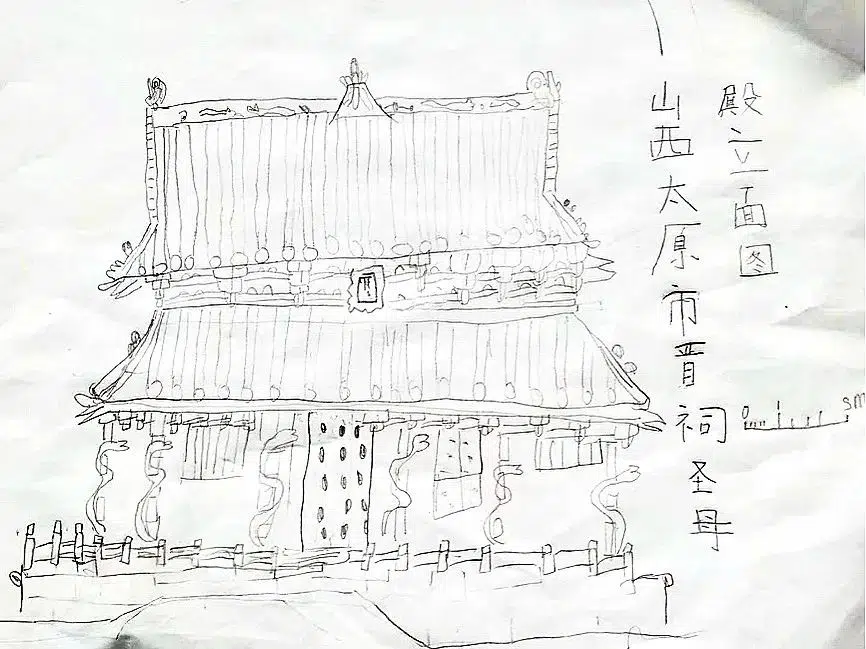 山西太原市晋祠圣母
殿立面图
0 5M